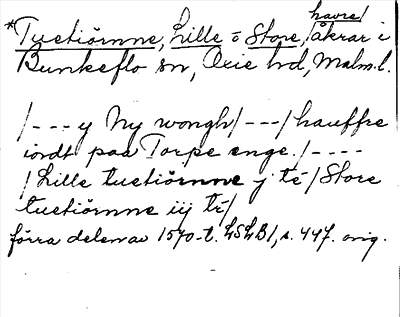 havre/
*Tuetiörnne, Lille o Store, åkrar i
Bunkeflo sn, Oxie hd, Malm.l.
/---y Ny wongh/---/hauffre
iordt paa Torpe enge./----
/Lille tuetiörnne j té/Store
tuetiörnne iij té/
förra delen av 1570-t. LSLB1, s. 447. orig.